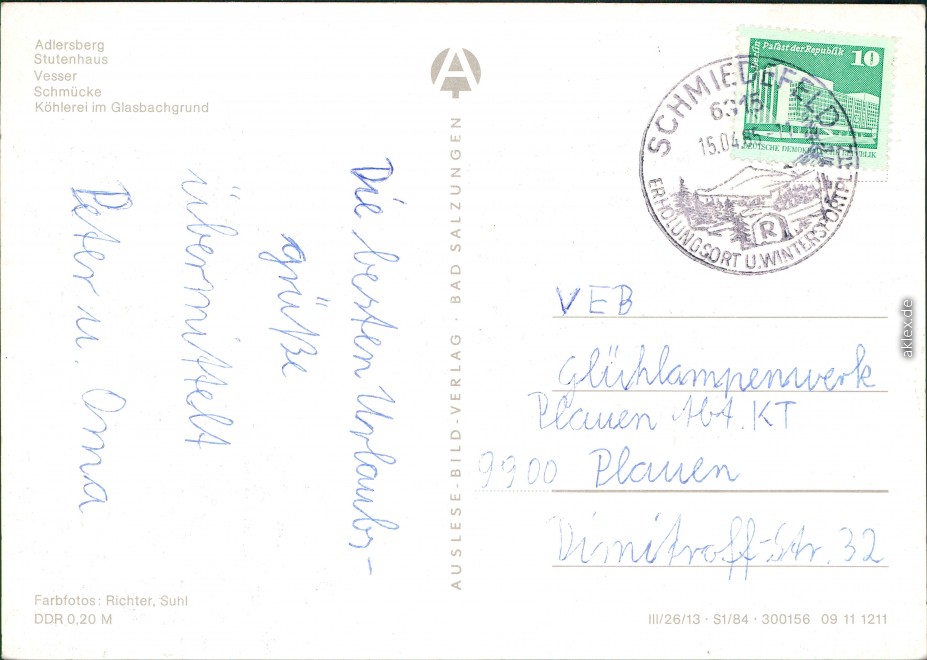 Adlersberg
Stutenhaus
Vesser
Schmücke
Köhlerei im Glasbachgrund
Die besten Urlaubs-
grüße
übermittelt
Peter u. Oma
Farbfotos: Richter, Suhl
DDR 0,20 M
AUSLESE-BILD-VERLAG · BAD SALZUNGEN
Palast der Republik 10
DEUTSCHE DEMOKRATISCHE REPUBLIK
SCHMIEDEFELD
6315
15.04.85
ERHOLUNGSORT U. WINTERSPORTPLATZ
R
VEB
Glühlampenwerk
Plauen Abt. KT
9900 Plauen
Dimitroff-Str. 32
III/26/13 · S1/84 · 300156 09 11 1211
aklex.de